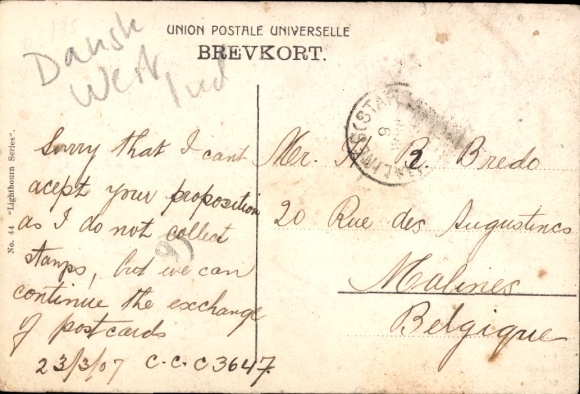 195
UNION POSTALE UNIVERSELLE
BREVKORT.
Dansk
West Ind
No. 44 "Lightbourn Series".
Sorry that I cant
acept your proposition
as I do not collect
stamps, but we can
continue the exchange
of postcards
23/3/07 C.C.C 3647.
Mr. A. B. Bredo
20 Rue des Augustines
Malines
Belgique
2